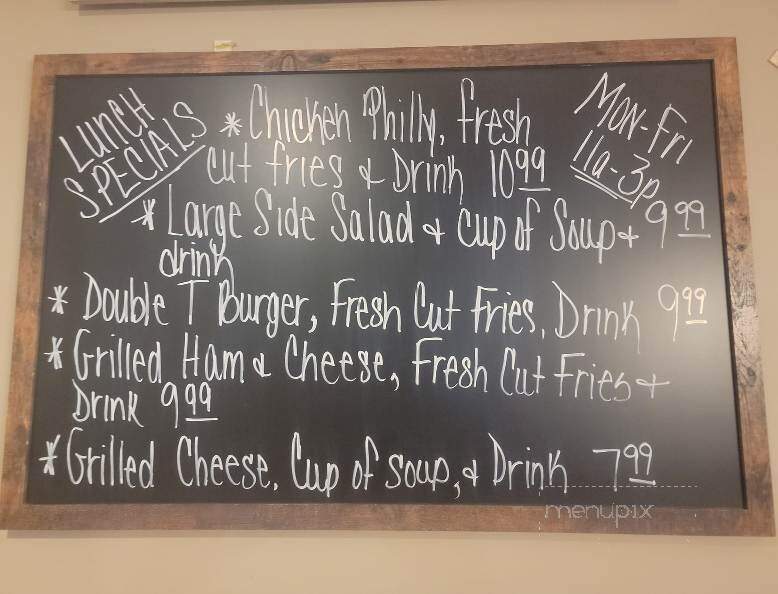 LUNCH
SPECIALS
MON-FRI
11a-3p
* Chicken Philly, fresh
cut fries & Drink 10 99
* Large Side Salad & cup of Soup & 9 99
drink
* Double T Burger, Fresh Cut Fries, Drink 9 99
* Grilled Ham & Cheese, Fresh Cut Fries &
Drink 9 99
* Grilled Cheese, Cup of soup, & Drink 7 99
menupix